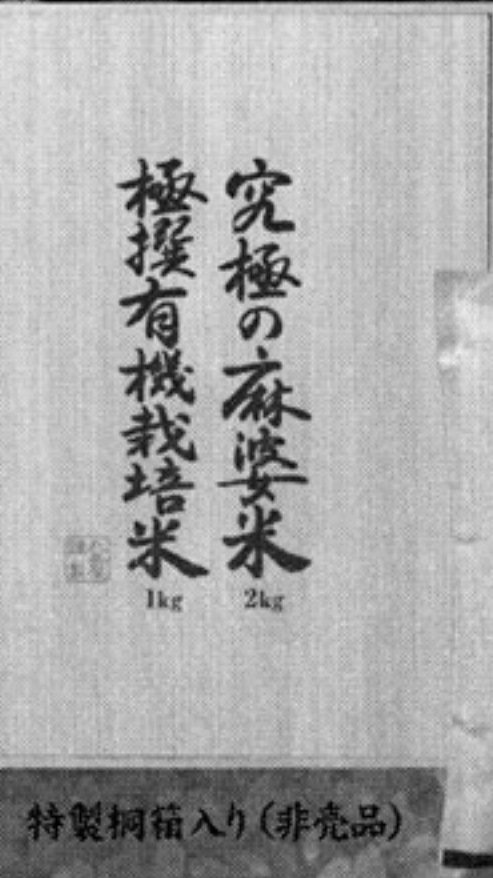 究極の麻婆米
2kg
極撰有機栽培米
1kg
特製桐箱入り(非売品)